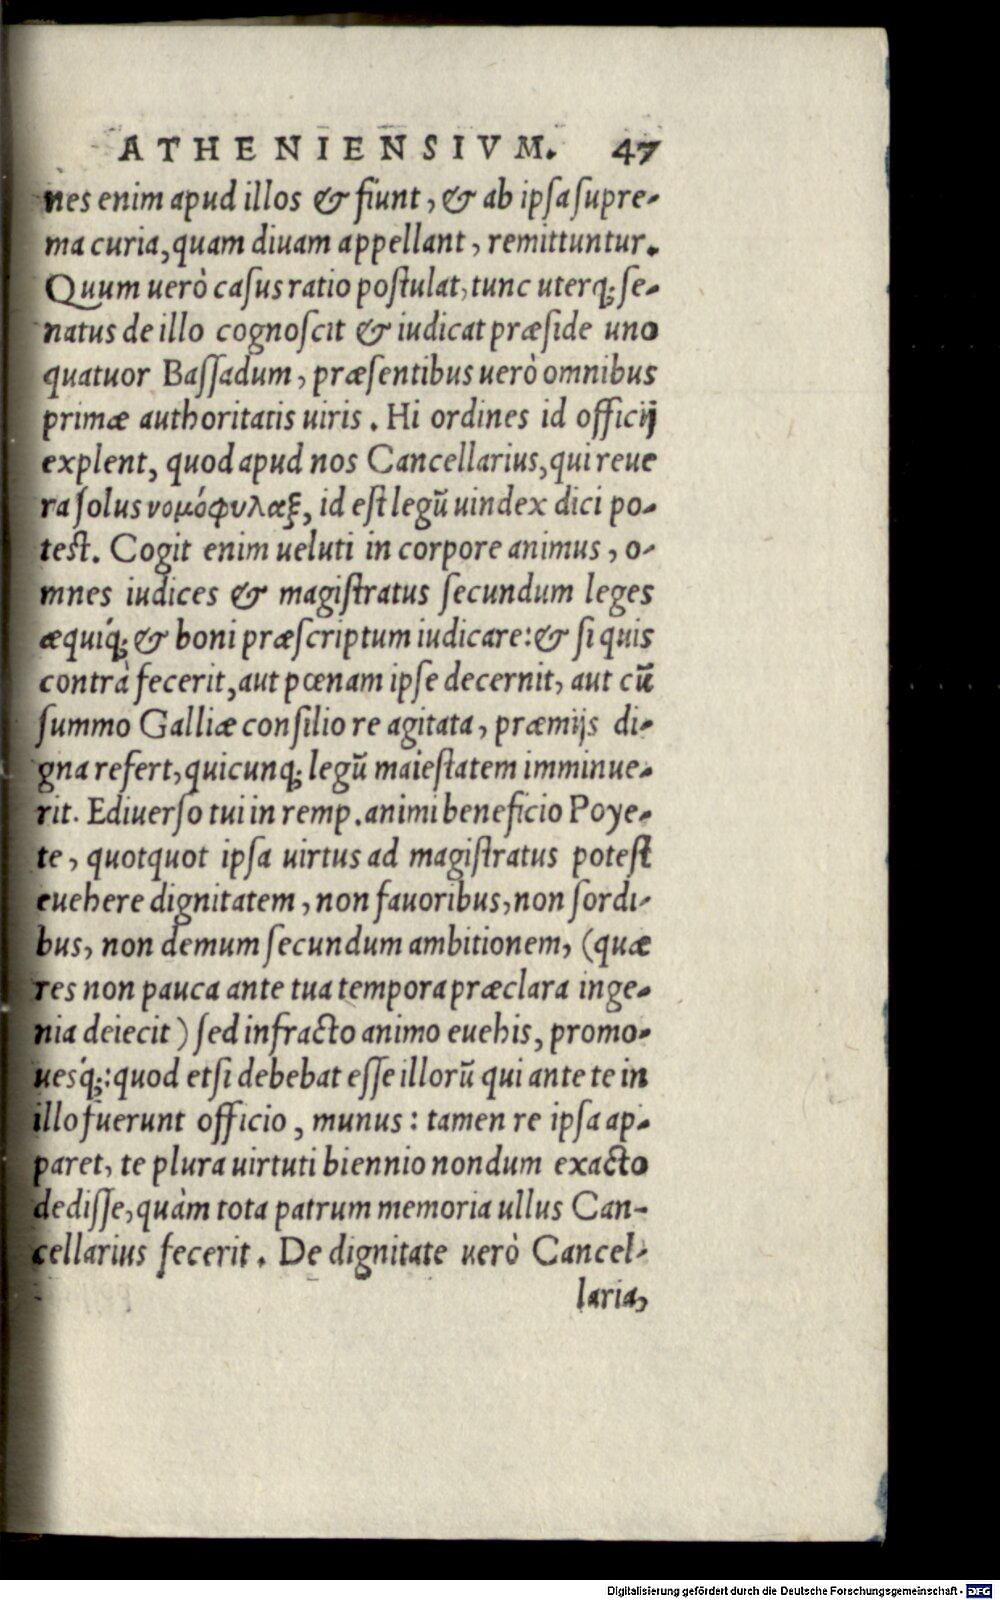 ATHENIENSIVM. 47
nes enim apud illos & fiunt, & ab ipsa supre-
ma curia, quam diuam appellant, remittuntur.
Quum uerò casus ratio postulat, tunc uterq; se-
natus de illo cognoscit & iudicat præside uno
quatuor Bassadum, præsentibus uerò omnibus
primæ authoritatis uiris. Hi ordines id officij
explent, quod apud nos Cancellarius, qui reue
ra solus νομόφυλαξ, id est legū uindex dici po-
test. Cogit enim ueluti in corpore animus, o-
mnes iudices & magistratus secundum leges
æquiq́; & boni præscriptum iudicare: & si quis
contrà fecerit, aut pœnam ipse decernit, aut cū
summo Galliæ consilio re agitata, præmijs di-
gna refert, quicunq; legū maiestatem imminue-
rit. Ediuerso tui in remp. animi beneficio Poye-
te, quotquot ipsa uirtus ad magistratus potest
euehere dignitatem, non fauoribus, non sordi-
bus, non demum secundum ambitionem, (quæ
res non pauca ante tua tempora præclara inge-
nia deiecit) sed infracto animo euehis, promo-
uesq́;: quod etsi debebat esse illorū qui ante te in
illo fuerunt officio, munus: tamen re ipsa ap-
paret, te plura uirtuti biennio nondum exacto
dedisse, quàm tota patrum memoria ullus Can-
cellarius fecerit. De dignitate uerò Cancel-
laria,
Digitalisierung gefördert durch die Deutsche Forschungsgemeinschaft - DFG